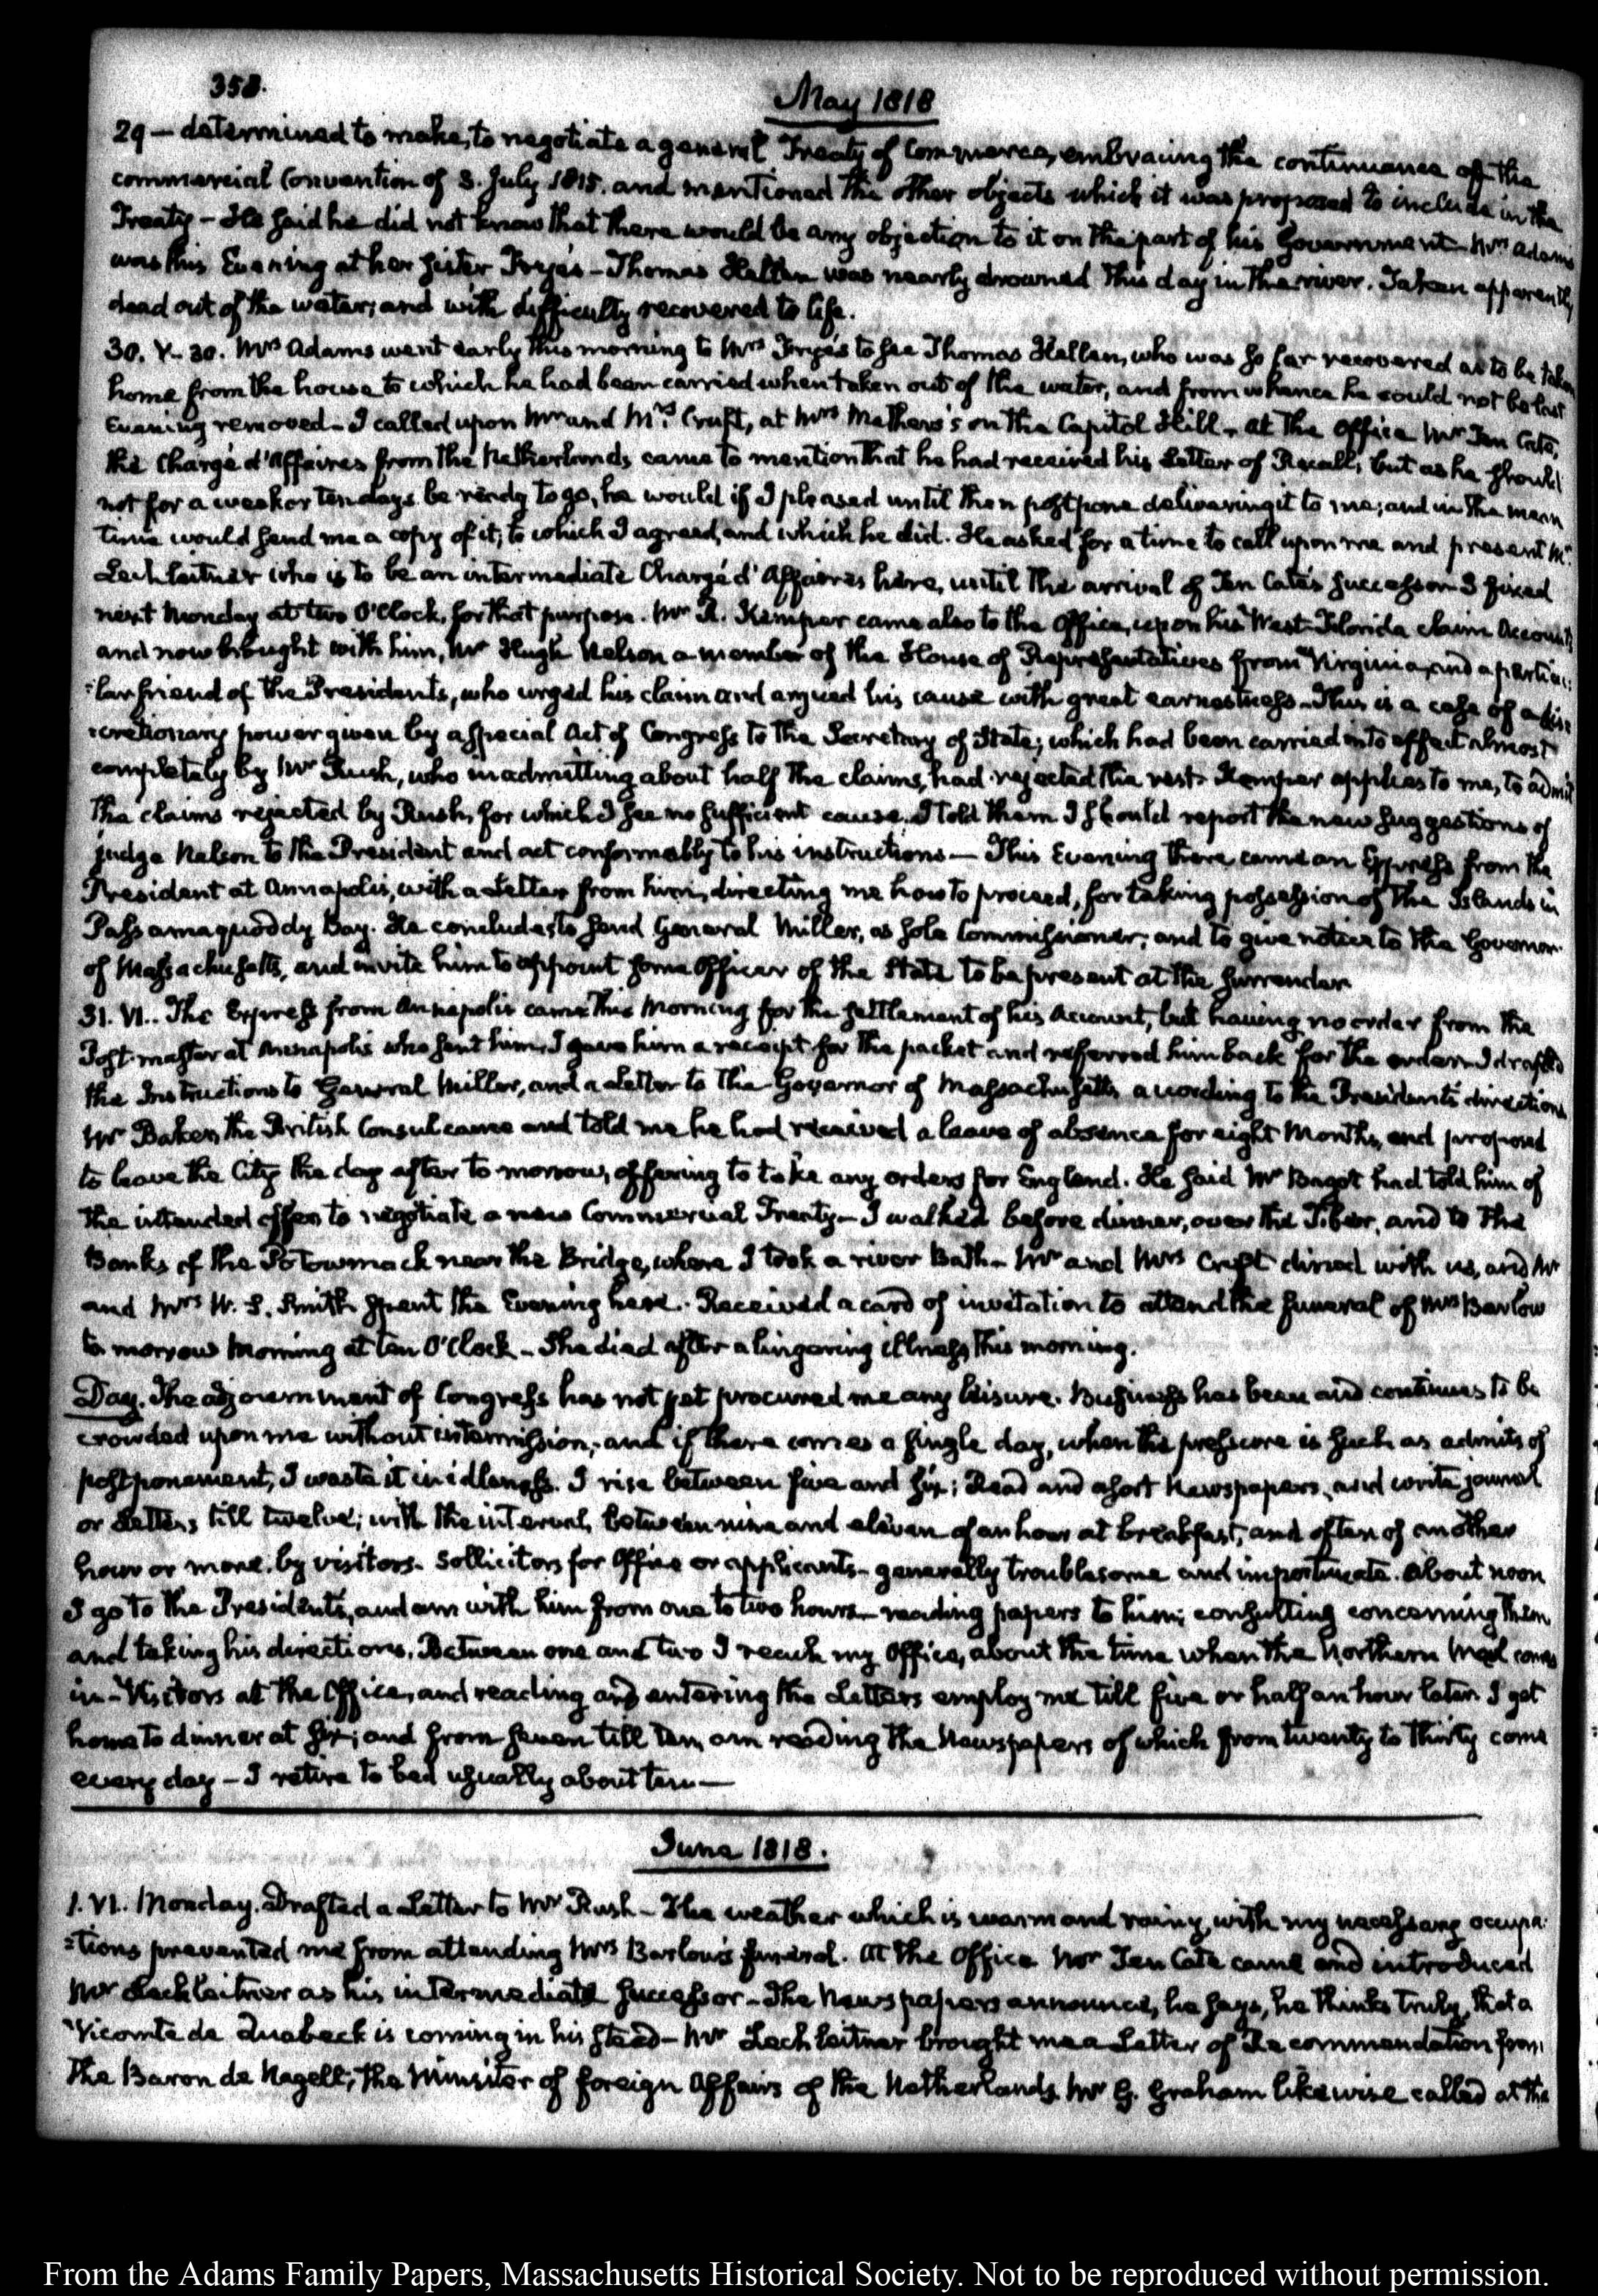 358.
May 1818
29 — determined to make, to negotiate a general Treaty of Commerce, embracing the continuance of the
commercial Convention of 3. July 1815. and mentioned the other objects which it was proposed to include in the
Treaty — He said he did not know that there would be any objection to it on the part of his Government — Mrs. Adams
was this Evening at her Sister Frye's — Thomas Hellen was nearly drowned this day in the river. Taken apparently
dead out of the water; and with difficulty recovered to life.
30. V. 30. Mrs Adams went early this morning to Mrs Frye's to see Thomas Hellen, who was so far recovered as to be taken
home from the house to which he had been carried when taken out of the water, and from whence he could not be last
Evening removed — I called upon Mr and Mrs. Cruft, at Mrs Mathers's on the Capitol Hill — At the Office Mr Ten Cate,
the Chargé d'Affaires from the Netherlands came to mention that he had received his Letter of Recall; but as he should
not for a week or ten days be ready to go, he would if I pleased until then postpone delivering it to me; and in the mean
time would send me a copy of it; to which I agreed, and which he did. He asked for a time to call upon me and present Mr.
Lechleitner who is to be an intermediate Chargé d'Affaires here, until the arrival of Ten Cate's successor I fixed
next Monday at two O'Clock, for that purpose. Mr R. Kemper came also to the Office, upon his West-Florida claim Accounts
and now brought with him, Mr Hugh Nelson a member of the House of Representatives from Virginia, and a particu:
:lar friend of the Presidents, who urged his claim and argued his cause with great earnestness — This is a case of a dis:
:cretionary power given by a special Act of Congress to the Secretary of State; which had been carried into effect almost
completely by Mr Rush, who in admitting about half the claims, had rejected the rest. Kemper applies to me, to admit
the claims rejected by Rush, for which I see no sufficient cause. I told them I should report the new suggestions of
judge Nelson to the President and act conformably to his instructions — This Evening there came an Express from the
President at Annapolis, with a Letter from him, directing me how to proceed, for taking possession of the Islands in
Passamaquoddy Bay. He concludes to send General Miller, as sole Commissioner; and to give notice to the Governor
of Massachusetts, and invite him to appoint some Officer of the State to be present at the surrender
31. VI.. The Express from Annapolis came this Morning for the settlement of his Account, but having no order from the
Post-master at Annapolis who sent him, I gave him a receipt for the packet and referred him back for the order — I drafted
the Instructions to General Miller, and a Letter to the Governor of Massachusetts according to the President's directions
Mr Baker, the British Consul came and told me he had received a leave of absence for eight Months, and proposed
to leave the City the day after to morrow, offering to take any orders for England. He said Mr Bagot had told him of
the intended offer to negotiate a new Commercial Treaty — I walked before dinner, over the Tiber, and to the
Banks of the Potowmack near the Bridge, where I took a river Bath — Mr and Mrs Cruft dined with us, and Mr
and Mrs W. S. Smith spent the Evening here. Received a card of invitation to attend the funeral of Mrs Barlow
to morrow Morning at ten O'Clock — She died after a lingering illness, this morning.
Day. The adjournment of Congress has not yet procured me any leisure. Business has been and continues to be
crowded upon me without intermission; and if there comes a single day, when the pressure is such as admits of
postponement, I waste it in idleness. I rise between five and six; Read and assort Newspapers, and write journal
or Letters till twelve; with the interval, between nine and eleven of an hour at breakfast, and often of another
hour or more by visitors — Sollicitors for Office or applicants — generally troublesome and importunate. About noon
I go to the Presidents, and am with him from one to two hours — reading papers to him; consulting concerning them
and taking his directions. Between one and two I reach my Office, about the time when the Northern Mail comes
in — Visitors at the Office, and reading and entering the Letters employ me till five or half an hour later. I get
home to dinner at six; and from seven till ten, am reading the Newspapers of which from twenty to thirty come
every day — I retire to bed usually about ten —
June 1818.
1. VI. Monday. Drafted a Letter to Mr Rush — The weather which is warm and rainy, with my necessary occupa:
:tions prevented me from attending Mrs Barlow's funeral. At the Office Mr Ten Cate came and introduced
Mr Lechleitner as his intermediate successor — The Newspapers announce, he says, he thinks truly, that a
Vicomte de Quabeck is coming in his stead — Mr Lechleitner brought me a Letter of Recommendation from
the Baron de Nagell, the Minister of foreign Affairs of the Netherlands. Mr G. Graham likewise called at the
From the Adams Family Papers, Massachusetts Historical Society. Not to be reproduced without permission.